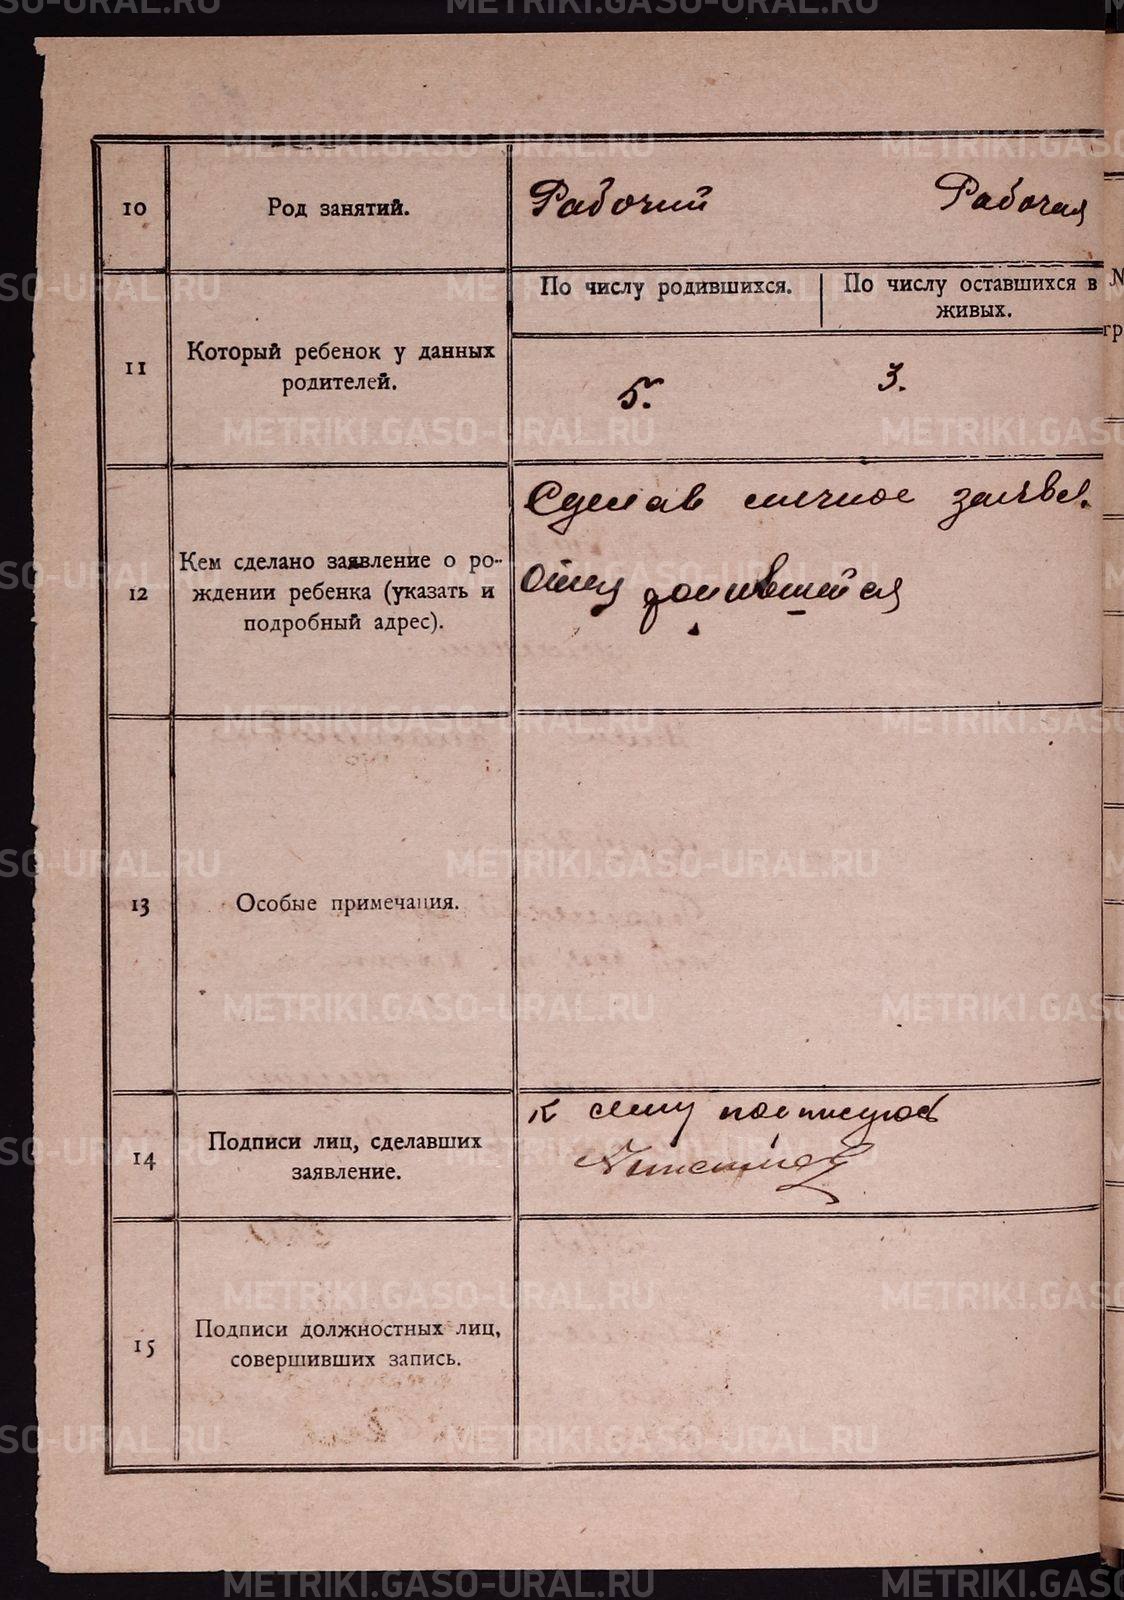 10 Род занятий. Рабочий Рабочая
По числу родившихся. По числу оставшихся в живых.
11 Который ребенок у данных родителей. 5. 3.
12 Кем сделано заявление о рождении ребенка (указать и подробный адрес).
Сделав личное заявл.
отец родившейся
13 Особые примечания.
14 Подписи лиц, сделавших заявление.
К сему подписуюсь
15 Подписи должностных лиц, совершивших запись.
METRIKI.GASO-URAL.RU